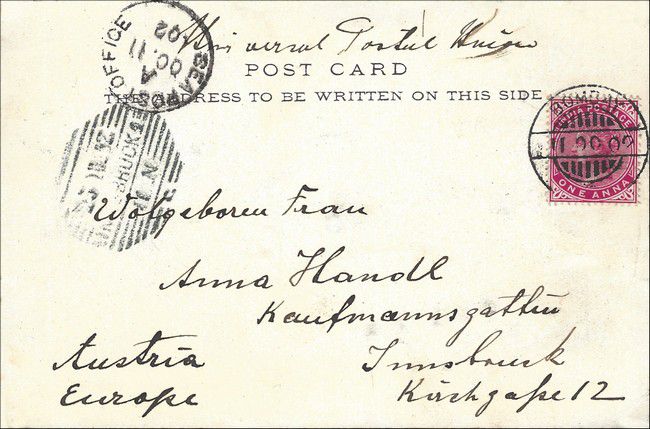 Universal Postal Union
POST CARD
THE ADDRESS TO BE WRITTEN ON THIS SIDE
SEA POST OFFICE
A
OC. 11
02
BOMBAY
11 OC 02
INDIA POSTAGE
ONE ANNA
INNSBRUCK 1
Wolgeboren Frau
Anna Handl
Kaufmannsgattin
Austria
Innsbruck
Europe
Kirchgaße 12